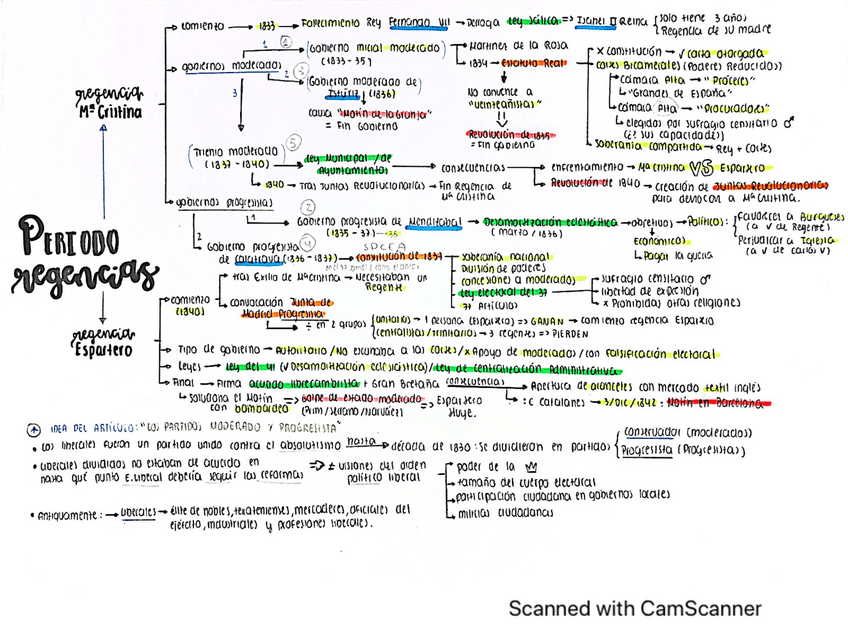 PERIODO regencias
regencia Mª Cristina
comienzo → 1833 → Fallecimiento Rey Fernando VII → Deroga Ley Sálica => Isabel II Reina { Solo tiene 3 años
Regencia de su madre
gobiernos moderados
1 ① (Gobierno inicial moderado) (1833-35)
Martínez de la Rosa
1834 → Estatuto Real
No convence a "veinteañistas"
Revolución de 1835 = fin gobierno
x constitución → √ carta otorgada
Cortes Bicamerales (Poderes Reducidos)
Cámara Alta → "Próceres"
"Grandes de España"
Cámara Alta → "Procuradores"
elegidos por sufragio censitario ♂
soberanía compartida → Rey + Cortes
2 ③ (Gobierno moderado de Istúriz) (1836)
causa "Motín de la Granja" = Fin Gobierno
3 (Trienio moderado) ⑤ (1837-1840)
Ley Municipal / de Ayuntamientos → consecuencias
enfrentamiento → Mª Cristina VS Espartero
Revolución de 1840 → creación de Juntas Revolucionarias para derrocar a Mª Cristina.
1840 → Tras Juntas Revolucionarias → Fin Regencia de Mª Cristina
gobiernos progresistas
1 ② Gobierno progresista de Mendizábal → Desamortización eclesiástica → objetivos → Políticos: { Favorecer a Burgueses (a √ de Regente)
(1835-37) -36
(marzo / 1836)
Perjudicar a Iglesia (a √ de Carlos V)
económicos
Pagar la guerra
2 ④ Gobierno progresista de Calatrava (1836-1837) → constitución de 1837
soberanía nacional
División de poderes
concesiones a moderados
Ley electoral del 37
77 Artículos
sufragio censitario ♂
libertad de expresión
x Prohibidas otras religiones
regencia Espartero
comienzo (1840)
tras Exilio de Mª Cristina → Necesitaban un Regente
convocación Junta de Madrid Progresista
÷ en 2 grupos { Unitarios → 1 persona (Espartero) => GANAN → comienzo regencia Espartero
centralistas/trinitarios → 3 regentes => PIERDEN
Tipo de gobierno → Autoritario / No escuchaba a las Cortes / x Apoyo de moderados / con falsificación electoral
Leyes → Ley del 41 (√ Desamortización eclesiástica) / Ley de centralización Administrativa
Final → Firma acuerdo librecambista + Gran Bretaña consecuencias → Apertura de aranceles con mercado textil inglés
:c Catalanes → 3/DIC/1842: Motín en Barcelona
soluciona el Motín con bombardeo => Golpe de estado moderado (Prim/Serrano/Narváez) => Espartero Huye.
IDEA DEL ARTÍCULO: "LOS PARTIDOS MODERADO Y PROGRESISTA"
• Los liberales fueron un partido unido contra el absolutismo hasta → década de 1830: Se dividieron en partidos { Conservador (moderados)
Progresista (Progresistas)
• Liberales divididos no estaban de acuerdo en hasta qué punto E. liberal debería seguir las reformas => ≠ visiones del orden político liberal
poder de la
tamaño del cuerpo electoral
participación ciudadana en gobiernos locales
milicias ciudadanas
• Antiguamente: → Liberales → élite de nobles, terratenientes, mercaderes, oficiales del ejército, industriales y profesiones liberales.
Scanned with CamScanner